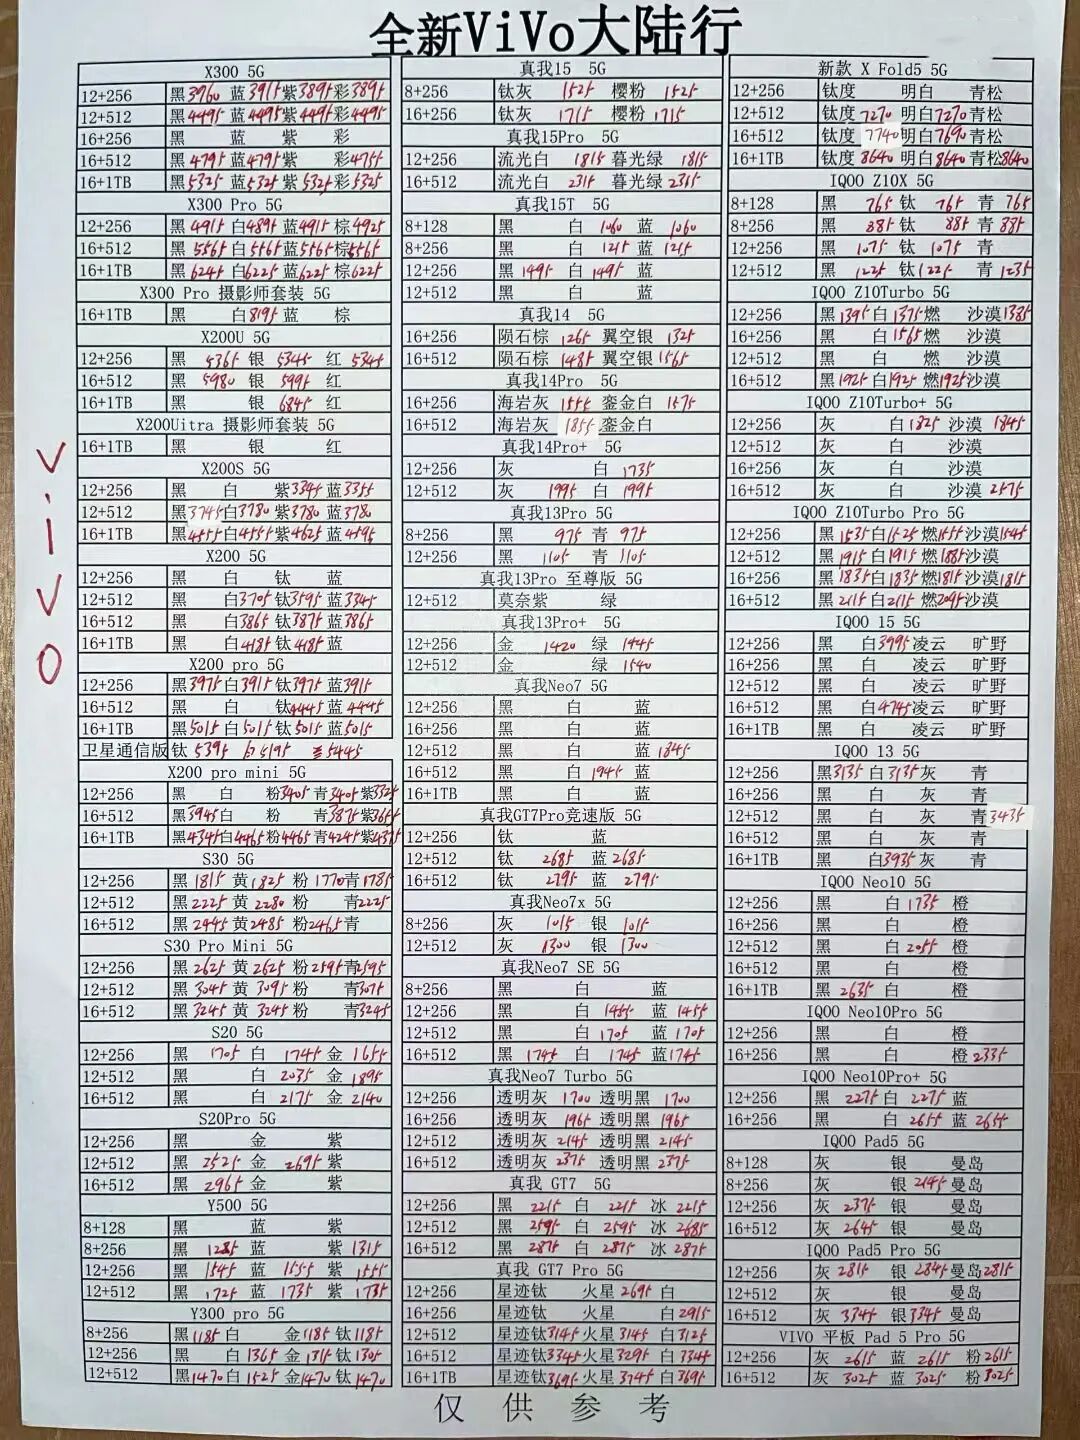 全新ViVo大陆行
ViVO
X300 5G
12+256 黑3960 蓝3915 紫3895 彩3895
12+512 黑4495 蓝4495 紫4495 彩4495
16+256 黑 蓝 紫 彩
16+512 黑4795 蓝4795 紫 彩4755
16+1TB 黑5325 蓝5325 紫5325 彩5325
X300 Pro 5G
12+256 黑4915 白4895 蓝4915 棕4925
16+512 黑5565 白5565 蓝5565 棕5565
16+1TB 黑6245 白6225 蓝6225 棕6225
X300 Pro 摄影师套装 5G
16+1TB 黑 白8195 蓝 棕
X200U 5G
12+256 黑 5365 银 5345 红 5345
16+512 黑 5980 银 5995 红
16+1TB 黑 银 6845 红
X200Uitra 摄影师套装 5G
16+1TB 黑 银 红
X200S 5G
12+256 黑 白 紫3345 蓝3355
12+512 黑3745 白3780 紫3780 蓝3780
16+1TB 黑4555 白4555 紫4625 蓝4595
X200 5G
12+256 黑 白 钛 蓝
12+512 黑 白3705 钛3595 蓝3345
16+512 黑 白3865 钛3875 蓝3865
16+1TB 黑 白4185 钛4185 蓝
X200 pro 5G
12+256 黑3975 白3915 钛3975 蓝3915
16+512 黑 白 钛4445 蓝4445
16+1TB 黑5015 白5015 钛5015 蓝5015
卫星通信版 钛 5395 白5195 兰5445
X200 pro mini 5G
12+256 黑 白 粉3405 青3405 紫3325
16+512 黑3945 白 粉 青3875 紫3655
16+1TB 黑4345 白4465 粉4465 青4245 紫4375
S30 5G
12+256 黑1815 黄1825 粉1770 青1785
12+512 黑2225 黄2280 粉 青2225
16+512 黑2445 黄2485 粉2465 青
S30 Pro Mini 5G
12+256 黑2625 黄2625 粉2595 青2595
12+512 黑3045 黄3095 粉 青3075
16+512 黑3245 黄3245 粉 青3245
S20 5G
12+256 黑 1705 白 1745 金 1655
12+512 黑 白 2035 金 1895
16+512 黑 白 2175 金 2140
S20Pro 5G
12+256 黑 金 紫
12+512 黑 2525 金 2695 紫
16+512 黑 2965 金 紫
Y500 5G
8+128 黑 蓝 紫
8+256 黑 1285 蓝 紫1315
12+256 黑 1545 蓝 1555 紫 1555
12+512 黑 1725 蓝 1735 紫 1735
Y300 pro 5G
8+256 黑1185 白 金1185 钛1185
12+256 黑 白1365 金1315 钛1305
12+512 黑1470 白1525 金1470 钛1470
真我15 5G
8+256 钛灰 1525 樱粉 1525
16+256 钛灰 1715 樱粉 1715
真我15Pro 5G
12+256 流光白 1815 暮光绿 1815
16+512 流光白 2315 暮光绿 2315
真我15T 5G
8+128 黑 白 1060 蓝 1060
8+256 黑 白 1215 蓝 1215
12+256 黑1495 白1495 蓝
12+512 黑 白 蓝
真我14 5G
16+256 陨石棕 1265 翼空银 1325
16+512 陨石棕 1485 翼空银 1565
真我14Pro 5G
16+256 海岩灰 1555 銮金白 1575
16+512 海岩灰 1855 銮金白
真我14Pro+ 5G
12+256 灰 白 1735
12+512 灰 1995 白 1995
真我13Pro 5G
8+256 黑 975 青 975
12+256 黑 1105 青 1105
真我13Pro 至尊版 5G
12+512 莫奈紫 绿
真我13Pro+ 5G
12+256 金 1420 绿 1445
12+512 金 绿 1540
真我Neo7 5G
12+256 黑 白 蓝
16+256 黑 白 蓝
12+512 黑 白 蓝1845
16+512 黑 白 1945 蓝
16+1TB 黑 白 蓝
真我GT7Pro竞速版 5G
12+256 钛 蓝
12+512 钛 2685 蓝2685
16+512 钛 2795 蓝 2795
真我Neo7x 5G
8+256 灰 1015 银 1015
12+512 灰 1300 银 1300
真我Neo7 SE 5G
8+256 黑 白 蓝
12+256 黑 白 1455 蓝1455
12+512 黑 白1705 蓝1705
16+512 黑 1745 白 1745 蓝1745
真我Neo7 Turbo 5G
12+256 透明灰 1700 透明黑 1700
16+256 透明灰 1965 透明黑 1965
12+512 透明灰2145 透明黑2145
16+512 透明灰2375 透明黑 2375
真我 GT7 5G
12+256 黑 2215 白 2215 冰2215
12+512 黑 2595 白 2595 冰2685
16+512 黑 2875 白 2875 冰2875
真我 GT7 Pro 5G
12+256 星迹钛 火星2695 白
16+256 星迹钛 火星 白2915
12+512 星迹钛3145 火星3145 白3125
16+512 星迹钛3345 火星3295 白3345
16+1TB 星迹钛3695 火星3745 白3695
新款 X Fold5 5G
12+256 钛度 明白 青松
12+512 钛度7270 明白7270 青松
16+512 钛度 7740 明白7690 青松
16+1TB 钛度8640 明白8640 青松8640
IQOO Z10X 5G
8+128 黑 765 钛 765 青 765
8+256 黑 885 钛 885 青 885
12+256 黑 1075 钛 1075 青
12+512 黑 1225 钛1225 青 1235
IQOO Z10Turbo 5G
12+256 黑1395 白1375 燃 沙漠1385
16+256 黑 白1565 燃 沙漠
12+512 黑 白 燃 沙漠
16+512 黑1925 白1925 燃1925 沙漠
IQOO Z10Turbo+ 5G
12+256 灰 白1825 沙漠 1845
12+512 灰 白 沙漠
16+256 灰 白 沙漠
16+512 灰 白 沙漠2575
IQOO Z10Turbo Pro 5G
12+256 黑1535 白1525 燃1555 沙漠1545
12+512 黑1915 白1915 燃1885 沙漠
16+256 黑1835 白1835 燃1815 沙漠1815
16+512 黑2115 白2115 燃2095 沙漠
IQOO 15 5G
12+256 黑 白3995 凌云 旷野
16+256 黑 白 凌云 旷野
12+512 黑 白 凌云 旷野
16+512 黑 白4745 凌云 旷野
16+1TB 黑 白 凌云 旷野
IQOO 13 5G
12+256 黑3135 白3135 灰 青
16+256 黑 白 灰 青
12+512 黑 白 灰 青3435
16+512 黑 白 灰 青
16+1TB 黑 白3935 灰 青
IQOO Neo10 5G
12+256 黑 白1735 橙
16+256 黑 白 橙
12+512 黑 白2055 橙
16+512 黑 白 橙
16+1TB 黑 2635 白 橙
IQOO Neo10Pro 5G
12+256 黑 白 橙
16+256 黑 白 橙2335
IQOO Neo10Pro+ 5G
12+256 黑 2275 白 2275 蓝
16+256 黑 白 2655 蓝 2655
IQOO Pad5 5G
8+128 灰 银 曼岛
8+256 灰 银 2145 曼岛
12+256 灰 2375 银 曼岛
16+512 灰 2645 银 曼岛
IQOO Pad5 Pro 5G
12+256 灰 2815 银 2845 曼岛2815
12+512 灰 银 曼岛
16+512 灰 3345 银3345 曼岛
VIVO 平板 Pad 5 Pro 5G
12+256 灰 2615 蓝 2615 粉2615
16+512 灰 3025 蓝 3025 粉3025
仅供参考